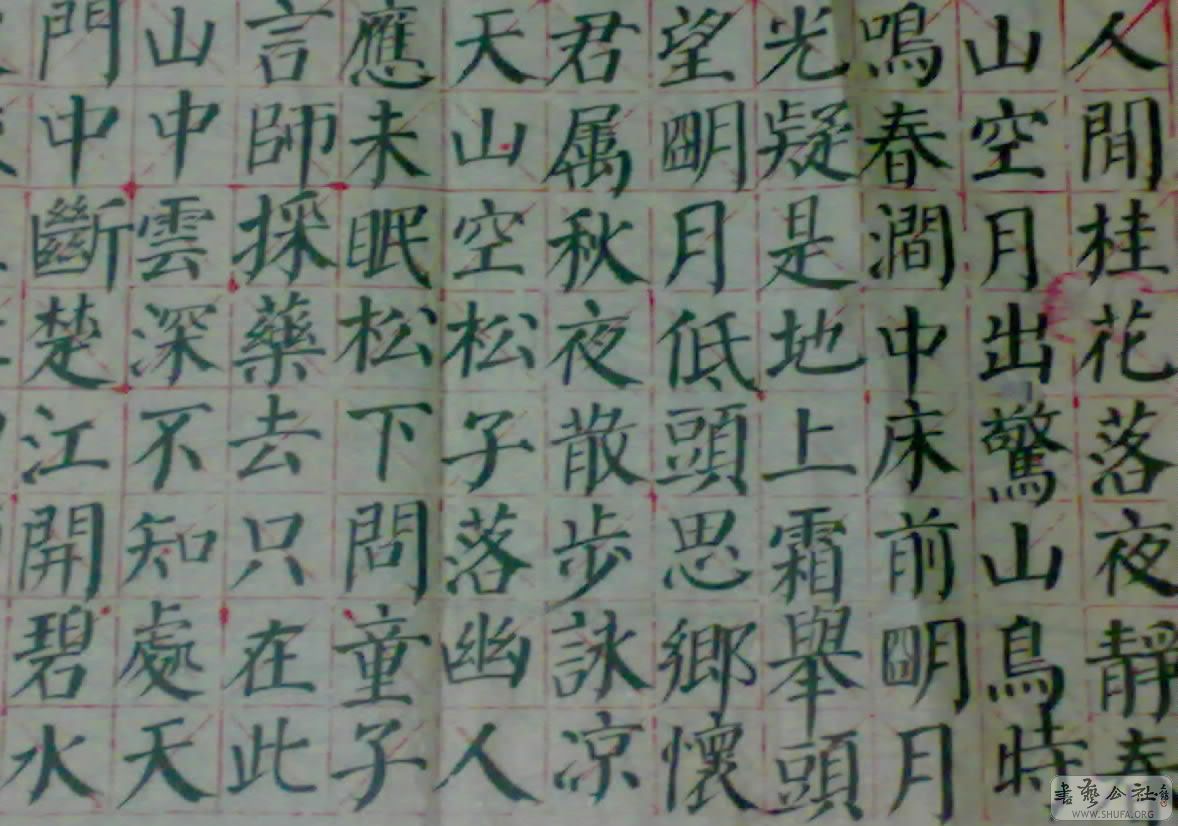 人閒桂花落夜靜春
山空月出驚山鳥時
鳴春澗中床前明月
光疑是地上霜舉頭
望明月低頭思鄉懷
君属秋夜散步詠凉
天山空松子落幽人
應未眠松下問童子
言師採藥去只在此
山中雲深不知處天
門中斷楚江開碧水
書藝公社
WWW.SHUFA.ORG